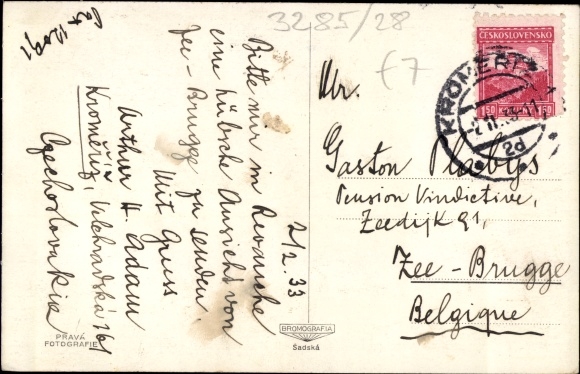 3285/28
£7
2/2. 33
Bitte mir in Revanche
eine hübsche Ansicht von
Zee-Brugge zu senden.
Mit Gruss
Arthur H. Adam
Kroměříž, Velehradská 261
Czechoslovakia
PRAVÁ
FOTOGRAFIE
BROMOGRAFIA
Sadská
ČESKOSLOVENSKO
150 KORUNY 150
KROMĚŘÍŽ
2d
Mr.
Gaston Plabijs
Pension Vindictive,
Zeedijk 91,
Zee-Brugge
Belgique